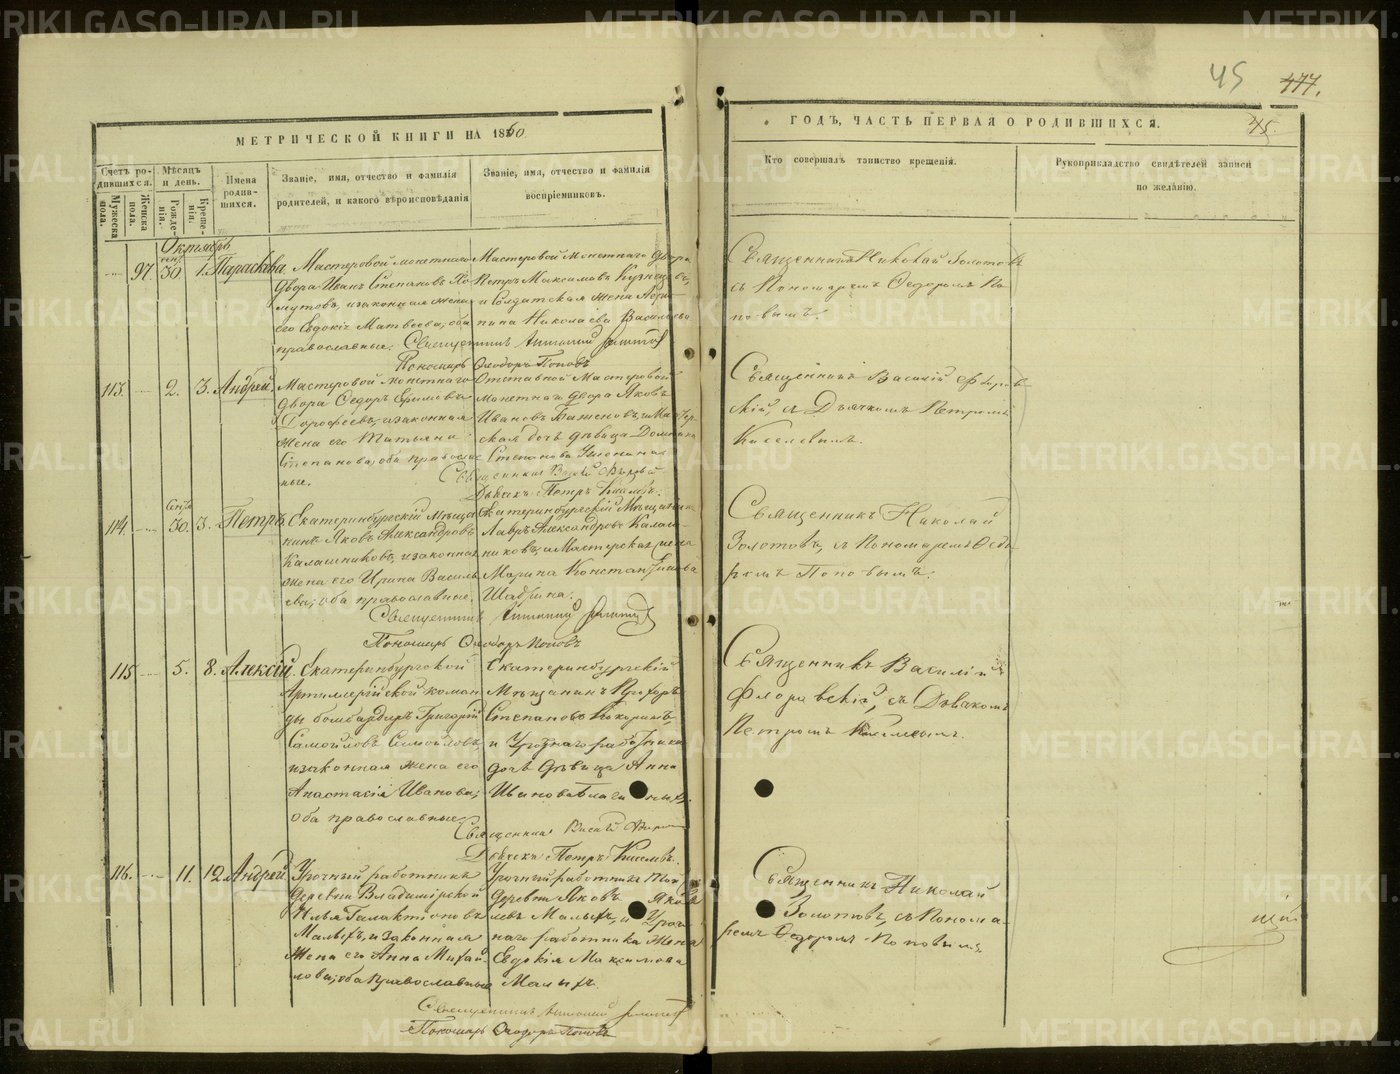 45
477.
МЕТРИЧЕСКОЙ КНИГИ НА 1860
ГОДЪ, ЧАСТЬ ПЕРВАЯ О РОДИВШИХСЯ.
45.
Счетъ родившихся.
Мужеска пола.
Женска пола.
Мѣсяцъ и день.
Рожденія.
Крещенія.
Имена родившихся.
Званіе, имя, отчество и фамилія
родителей, и какого вѣроисповѣданія
Званіе, имя, отчество и фамилія
воспріемниковъ.
Кто совершалъ таинство крещенія.
Рукоприкладство свидѣтелей записи
по желанію.
Октябрь
97.
30.
1.
Параскева
Мастеровой монетнаго
двора Иванъ Степановъ
и законная жена
его Евдокія Матвеева, оба
православные.
Мастеровой монетнаго двора
Петръ Максимовъ Кузнецовъ,
и Солдатская жена
Николаева Васильева
Священникъ Николай Золотовъ
съ Пономаремъ Ѳедоромъ По
повымъ.
Священникъ
Пономарь Ѳеодоръ Поповъ
113.
2.
3.
Андрей
Мастеровой монетнаго
двора Ѳедоръ Ефимовъ
Дорофеевъ, и законная
жена его Татьяна
Степанова, оба православ
ные.
Отставной Мастеровой
монетнаго двора Яковъ
Ивановъ Баженовъ, и Мастер
ская дочь дѣвица Домника
Степанова
Священникъ Василій Флоров
скій, съ Дьячкомъ Петромъ
Киселевымъ.
Дьячекъ Петръ Киселевъ.
114.
Сент.
30.
3.
Петръ
Екатеринбургскій Мѣща
нинъ Яковъ Александровъ
Калашниковъ, и законная
жена его Ирина Василь
ева, оба православные.
Екатеринбургскій Мѣщанинъ
Лавръ Александровъ Калаш
никовъ, и Мастерская жена
Марина Константинова
Шабрина.
Священникъ Николай
Золотовъ, съ Пономаремъ Ѳедо
ромъ Поповымъ.
Священникъ
Пономарь Ѳеодоръ Поповъ
115
5.
8.
Алексій
Екатеринбургской
Артиллерійской коман
ды бомбардиръ Григорій
Самойловъ Самойловъ
и законная жена его
Анастасія Иванова,
оба православные
Екатеринбургскій
Мѣщанинъ
Степановъ Кокоринъ,
и Урочнаго работника
дочь дѣвица Анна
Иванова
Священникъ Василій
Флоровскій, съ Дьячкомъ
Петромъ Киселевымъ.
Священникъ
Дьячекъ Петръ Киселевъ.
116.
11.
12
Андрей
Урочный работникъ
деревни Владимірской
Илья Галактіоновъ
Малыхъ, и законная
жена его Анна Михай
лова, оба Православные
Урочный работникъ той
деревни Яковъ Яков
левъ Малыхъ, и Уроч
наго работника жена
Евдокія Максимова
Малыхъ.
Священникъ Николай
Золотовъ, съ Понома
ремъ Ѳедоромъ Поповымъ.
щій
Священникъ
Пономарь Ѳеодоръ Поповъ
METRIKI.GASO-URAL.RU